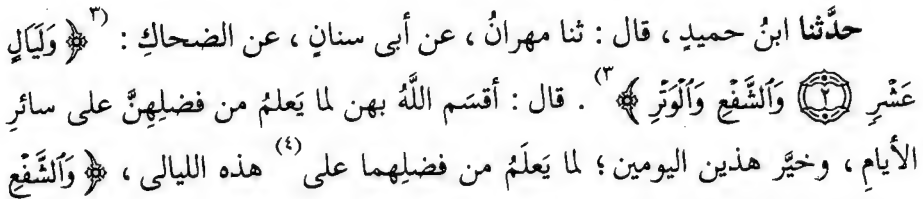 حدَّثنا ابنُ حميدٍ ، قال : ثنا مهرانُ ، عن أبى سنانٍ ، عن الضحاكِ : (٣ ﴿ وَلَيَالٍ
عَشْرٍ ۝٢ وَٱلشَّفْعِ وَٱلْوَتْرِ ﴾ ٣) . قال : أقسَم اللَّهُ بهن لما يَعلمُ من فضلِهنَّ على سائرِ
الأيامِ ، وخيَّر هذين اليومين ؛ لما يَعلَمُ من فضلِهما على (٤) هذه الليالى ، ﴿ وَٱلشَّفْعِ